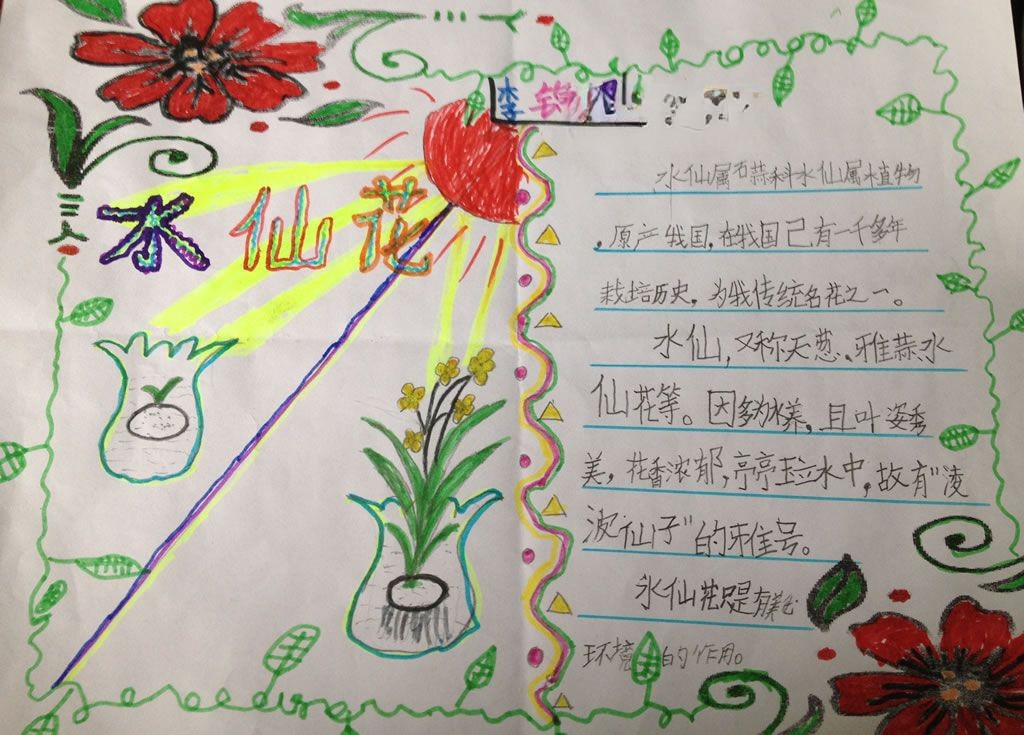 水仙花
李
水仙属石蒜科水仙属植物
,原产我国,在我国已有一千多年
栽培历史,为我传统名花之一。
水仙,又称天葱、雅蒜水
仙花等。因多为水养,且叶姿秀
美,花香浓郁,亭亭玉立水中,故有"凌
波仙子"的雅号。
水仙花只是有美化
环境的作用。